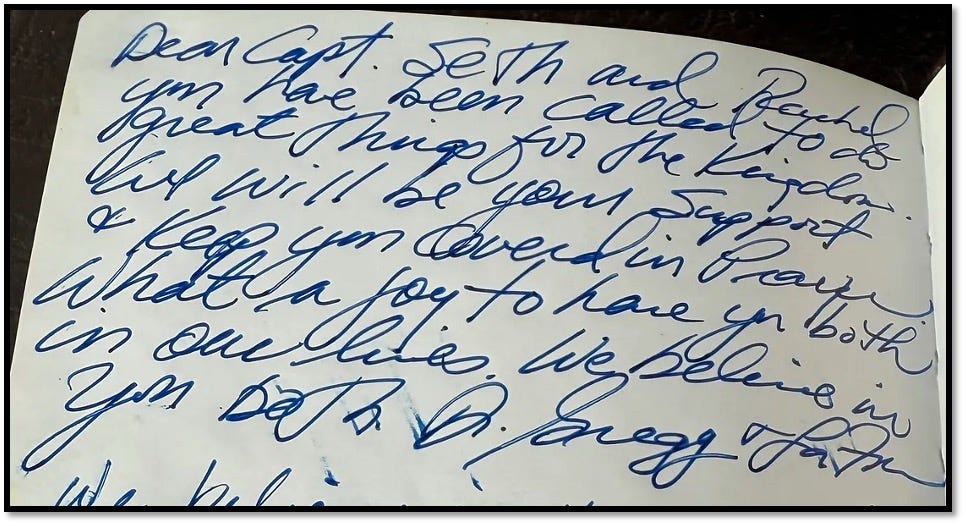 Dear Capt. Seth and Rachel
you have been called to do
great things for the Kingdom.
We will be your support
& Keep you covered in Prayer
What a joy to have you both
in our lives. We believe in
you both Dr. Gregg &
We believe in